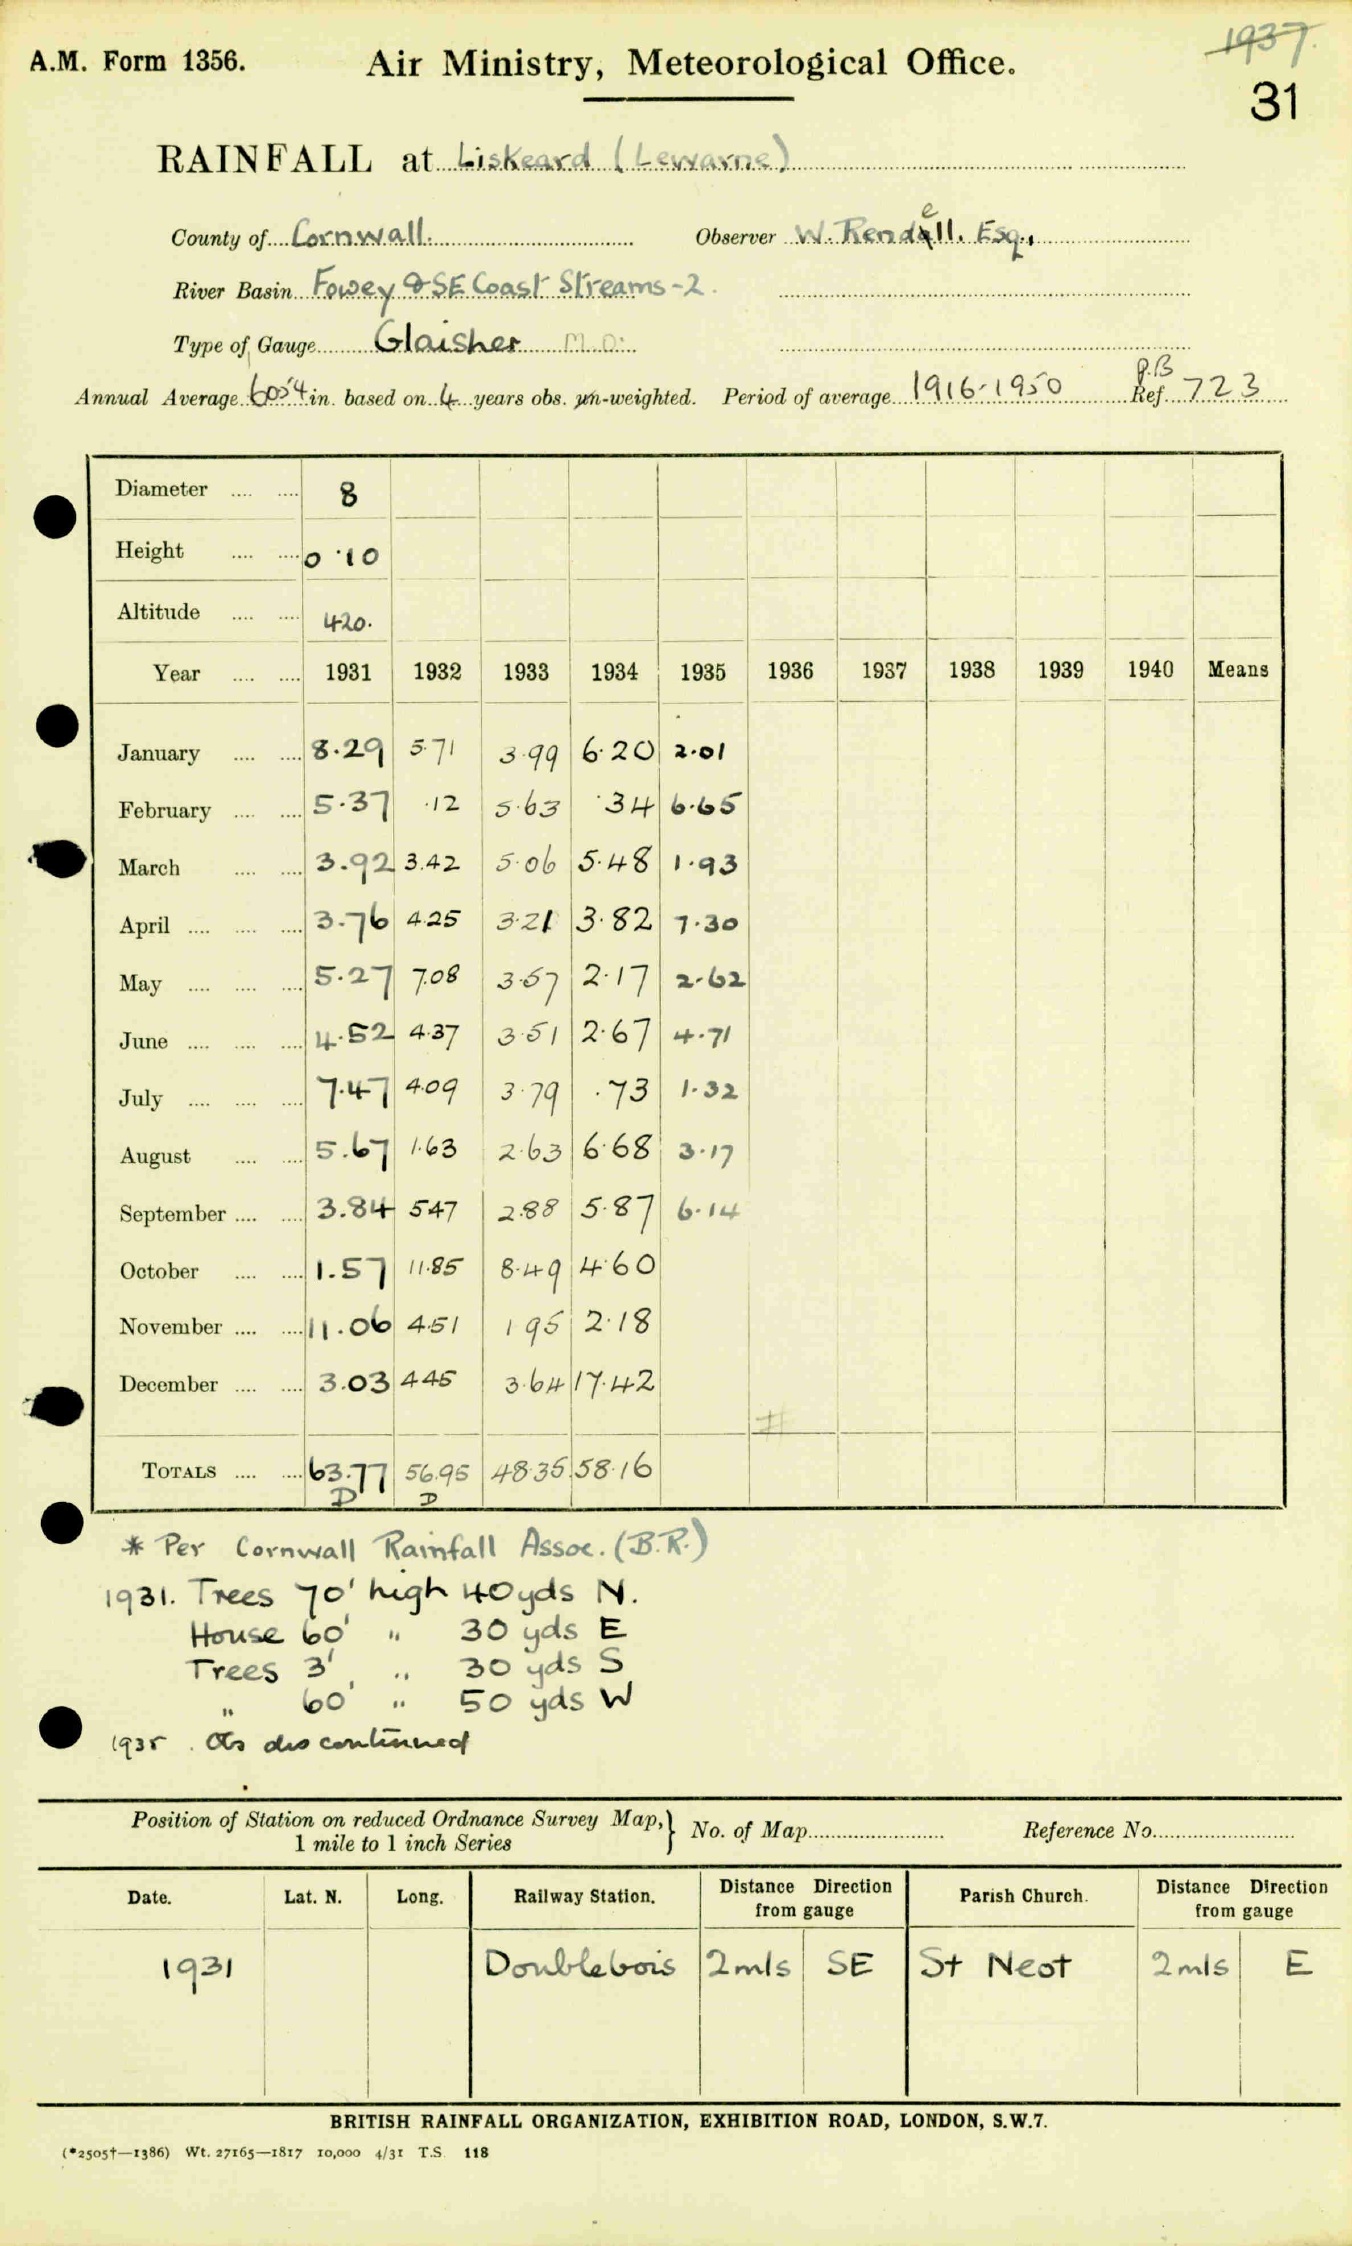 1937.
A.M. Form 1356. Air Ministry, Meteorological Office.
31
RAINFALL at Liskeard (Lewarne)
County of Cornwall. Observer W. Rendell. Esq.,
River Basin Fowey & SE Coast Streams - 2.
Type of Gauge Glaisher M.O.
Annual Average 60.54 in. based on 4 years obs. un-weighted. Period of average 1916-1950 Ref. 723
Diameter .... .... 8
Height .... .... 0.10
Altitude .... .... 420.
Year .... .... 1931 1932 1933 1934 1935 1936 1937 1938 1939 1940 Means
January .... .... 8.29 5.71 3.99 6.20 2.01
February .... .... 5.37 .12 5.63 .34 6.65
March .... .... 3.92 3.42 5.06 5.48 1.93
April .... .... .... 3.76 4.25 3.21 3.82 7.30
May .... .... .... 5.27 7.08 3.57 2.17 2.62
June .... .... .... 4.52 4.37 3.51 2.67 4.71
July .... .... .... 7.47 4.09 3.79 .73 1.32
August .... .... 5.67 1.63 2.63 6.68 3.17
September .... .... 3.84 5.47 2.88 5.87 6.14
October .... .... 1.57 11.85 8.49 4.60
November .... .... 11.06 4.51 1.95 2.18
December .... .... 3.03 4.45 3.64 17.42
TOTALS .... .... 63.77 56.95 48.35 58.16
D D
* Per Cornwall Rainfall Assoc. (B.R.)
1931. Trees 70' high 40 yds N.
House 60' " 30 yds E
Trees 3' " 30 yds S
" 60' " 50 yds W
1935. Obs discontinued
Position of Station on reduced Ordnance Survey Map, } No. of Map Reference No.
1 mile to 1 inch Series
Date. Lat. N. Long. Railway Station. Distance Direction from gauge Parish Church. Distance Direction from gauge
1931 Doublebois 2 mls SE St Neot 2 mls E
BRITISH RAINFALL ORGANIZATION, EXHIBITION ROAD, LONDON, S.W.7.
(*2505†—1386) Wt. 27165—1817 10,000 4/31 T.S. 118